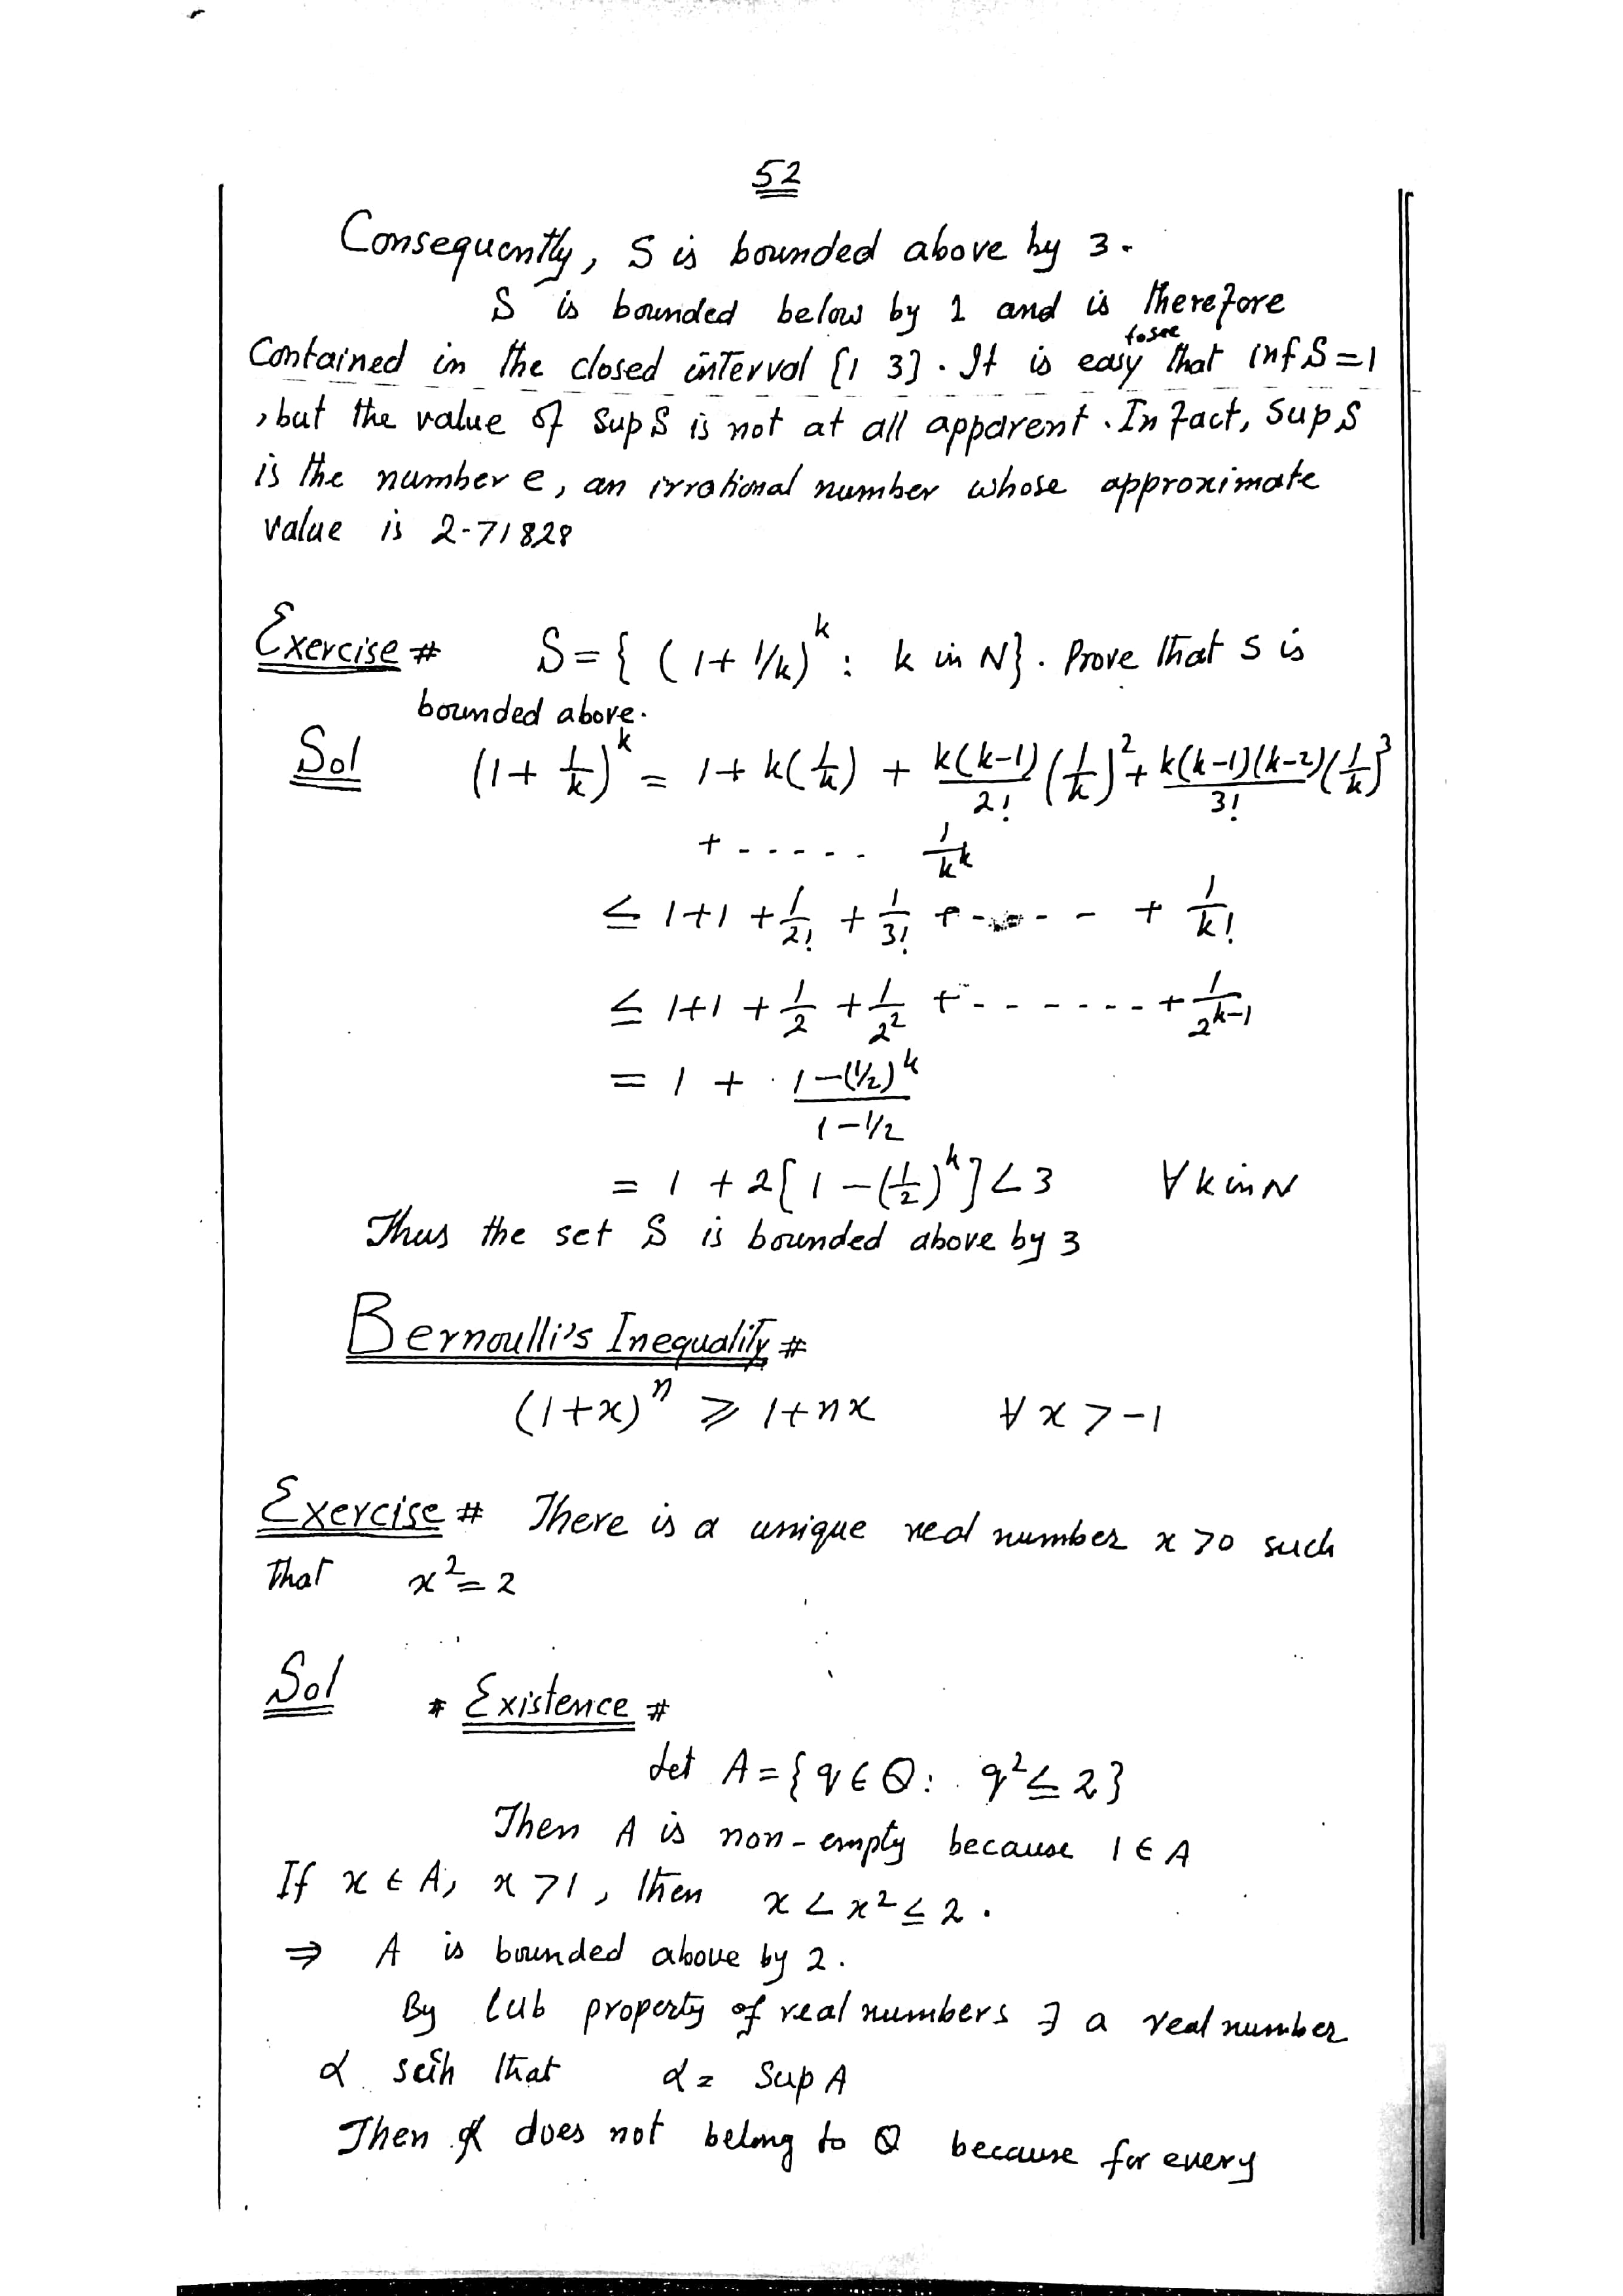 52
Consequently, S is bounded above by 3.
S is bounded below by 1 and is therefore
Contained in the closed interval [1 3]. It is easy to see that inf S = 1
, but the value of Sup S is not at all apparent. In fact, Sup S
is the number e, an irrational number whose approximate
value is 2.71828
Exercise # S = { (1 + 1/k)^k : k in N}. Prove that S is
bounded above.
Sol (1 + 1/k)^k = 1 + k(1/k) + k(k-1)/2! (1/k)^2 + k(k-1)(k-2)/3! (1/k)^3
+ ..... 1/k^k
≤ 1+1 + 1/2! + 1/3! + ..... + 1/k!
≤ 1+1 + 1/2 + 1/2^2 + ....... + 1/2^(k-1)
= 1 + (1-(1/2)^k)/(1-1/2)
= 1 + 2[1 - (1/2)^k] < 3 ∀ k in N
Thus the set S is bounded above by 3
Bernoulli's Inequality #
(1+x)^n ≥ 1+nx ∀ x > -1
Exercise # There is a unique real number x > 0 such
that x^2 = 2
Sol * Existence #
Let A = {q ∈ Q : q^2 ≤ 2}
Then A is non-empty because 1 ∈ A
If x ∈ A, x > 1, then x < x^2 ≤ 2.
⇒ A is bounded above by 2.
By lub property of real numbers ∃ a real number
α such that α = Sup A
Then α does not belong to Q because for every